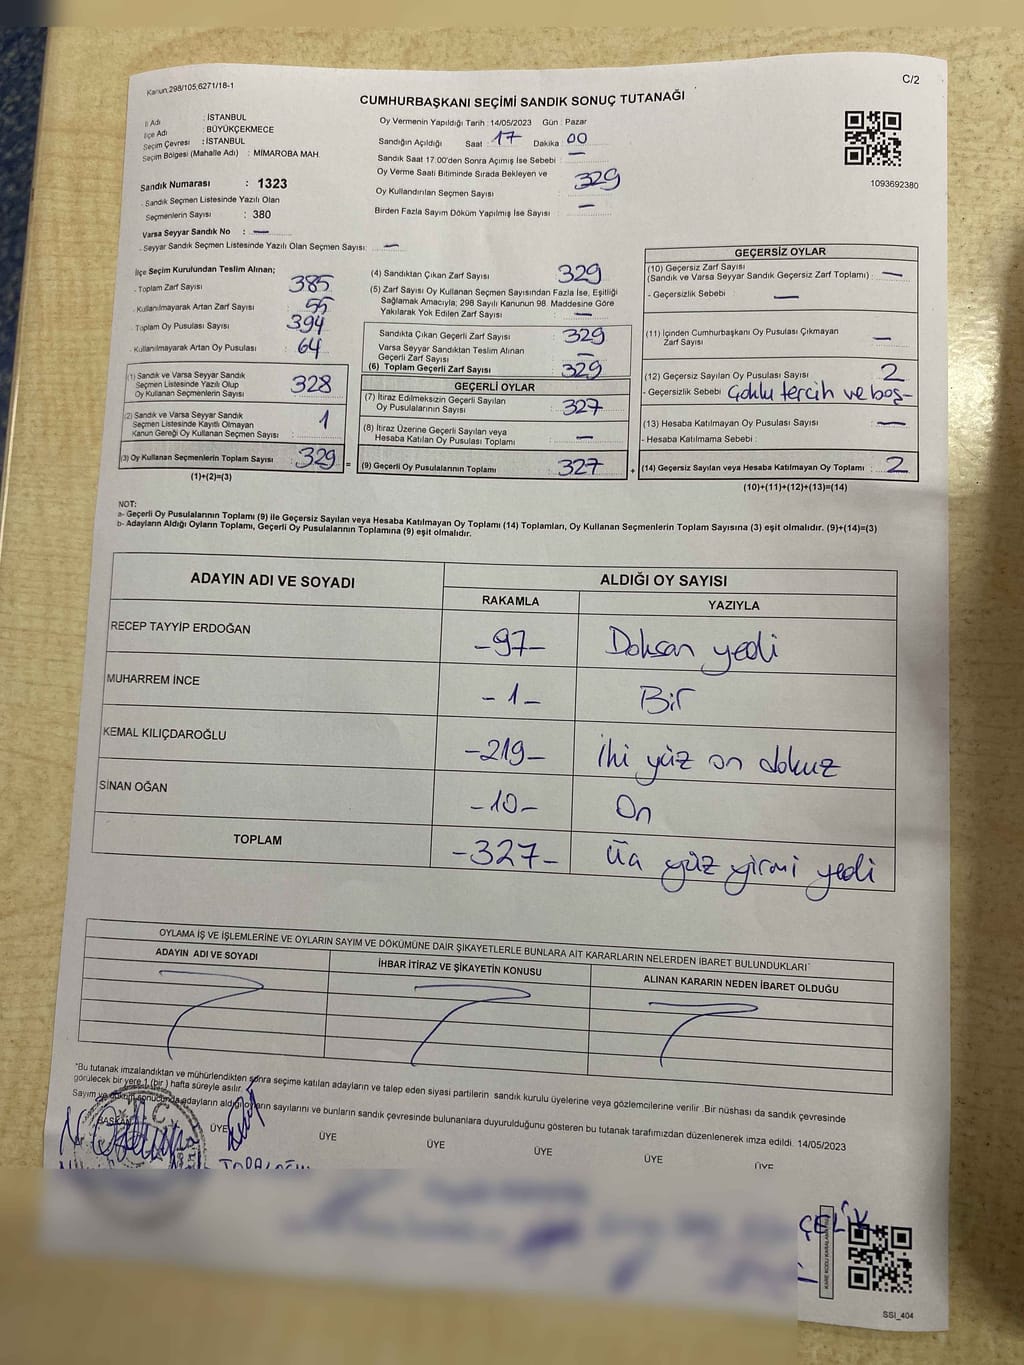 Kanun,298/105,6271/18-1
C/2
CUMHURBAŞKANI SEÇİMİ SANDIK SONUÇ TUTANAĞI
İl Adı : İSTANBUL
İlçe Adı : BÜYÜKÇEKMECE
Seçim Çevresi : İSTANBUL
Seçim Bölgesi (Mahalle Adı) : MİMAROBA MAH.
Sandık Numarası : 1323
- Sandık Seçmen Listesinde Yazılı Olan
Seçmenlerin Sayısı : 380
Varsa Seyyar Sandık No : —
- Seyyar Sandık Seçmen Listesinde Yazılı Olan Seçmen Sayısı: —
Oy Vermenin Yapıldığı Tarih : 14/05/2023 Gün : Pazar
Sandığın Açıldığı Saat : 17 Dakika : 00
Sandık Saat 17.00'den Sonra Açımış İse Sebebi : —
Oy Verme Saati Bitiminde Sırada Bekleyen ve
Oy Kullandırılan Seçmen Sayısı 329
Birden Fazla Sayım Döküm Yapılmış İse Sayısı : —
1093692380
İlçe Seçim Kurulundan Teslim Alınan;
- Toplam Zarf Sayısı : 385
- Kullanılmayarak Artan Zarf Sayısı : 55
- Toplam Oy Pusulası Sayısı : 394
- Kullanılmayarak Artan Oy Pusulası : 64
(1) Sandık ve Varsa Seyyar Sandık
Seçmen Listesinde Yazılı Olup
Oy Kullanan Seçmenlerin Sayısı : 328
(2) Sandık ve Varsa Seyyar Sandık
Seçmen Listesinde Kayıtlı Olmayan
Kanun Gereği Oy Kullanan Seçmen Sayısı : 1
(3) Oy Kullanan Seçmenlerin Toplam Sayısı : 329 =
(1)+(2)=(3)
(4) Sandıktan Çıkan Zarf Sayısı : 329
(5) Zarf Sayısı Oy Kullanan Seçmen Sayısından Fazla İse, Eşitliği
Sağlamak Amacıyla; 298 Sayılı Kanunun 98. Maddesine Göre
Yakılarak Yok Edilen Zarf Sayısı : —
Sandıkta Çıkan Geçerli Zarf Sayısı : 329
Varsa Seyyar Sandıktan Teslim Alınan
Geçerli Zarf Sayısı : —
(6) Toplam Geçerli Zarf Sayısı : 329
GEÇERLİ OYLAR
(7) İtiraz Edilmeksizin Geçerli Sayılan
Oy Pusulalarının Sayısı : 327
(8) İtiraz Üzerine Geçerli Sayılan veya
Hesaba Katılan Oy Pusulası Toplamı : —
(9) Geçerli Oy Pusulalarının Toplamı : 327 +
GEÇERSİZ OYLAR
(10) Geçersiz Zarf Sayısı
(Sandık ve Varsa Seyyar Sandık Geçersiz Zarf Toplamı) : —
- Geçersizlik Sebebi : —
(11) İçinden Cumhurbaşkanı Oy Pusulası Çıkmayan
Zarf Sayısı : —
(12) Geçersiz Sayılan Oy Pusulası Sayısı : 2
- Geçersizlik Sebebi : Çoklu tercih ve boş-
(13) Hesaba Katılmayan Oy Pusulası Sayısı : —
- Hesaba Katılmama Sebebi :
(14) Geçersiz Sayılan veya Hesaba Katılmayan Oy Toplamı : 2
(10)+(11)+(12)+(13)=(14)
NOT:
a- Geçerli Oy Pusulalarının Toplamı (9) ile Geçersiz Sayılan veya Hesaba Katılmayan Oy Toplamı (14) Toplamları, Oy Kullanan Seçmenlerin Toplam Sayısına (3) eşit olmalıdır. (9)+(14)=(3)
b- Adayların Aldığı Oyların Toplamı, Geçerli Oy Pusulalarının Toplamına (9) eşit olmalıdır.
ADAYIN ADI VE SOYADI ALDIĞI OY SAYISI
RAKAMLA YAZIYLA
RECEP TAYYİP ERDOĞAN -97- Doksan yedi
MUHARREM İNCE -1- Bir
KEMAL KILIÇDAROĞLU -219- İki yüz on dokuz
SİNAN OĞAN -10- On
TOPLAM -327- Üç yüz yirmi yedi
OYLAMA İŞ VE İŞLEMLERİNE VE OYLARIN SAYIM VE DÖKÜMÜNE DAİR ŞİKAYETLERLE BUNLARA AİT KARARLARIN NELERDEN İBARET BULUNDUKLARI*
ADAYIN ADI VE SOYADI İHBAR İTİRAZ VE ŞİKAYETİN KONUSU ALINAN KARARIN NEDEN İBARET OLDUĞU
*Bu tutanak imzalandıktan ve mühürlendikten sonra seçime katılan adayların ve talep eden siyasi partilerin sandık kurulu üyelerine veya gözlemcilerine verilir .Bir nüshası da sandık çevresinde
görülecek bir yere 1 (bir ) hafta süreyle asılır.
Sayım ve döküm sonucunda adayların aldığı oyların sayılarını ve bunların sandık çevresinde bulunanlara duyurulduğunu gösteren bu tutanak tarafımızdan düzenlenerek imza edildi. 14/05/2023
BAŞKAN ÜYE ÜYE ÜYE ÜYE ÜYE ÜYE
ÇELİK
SSI_404